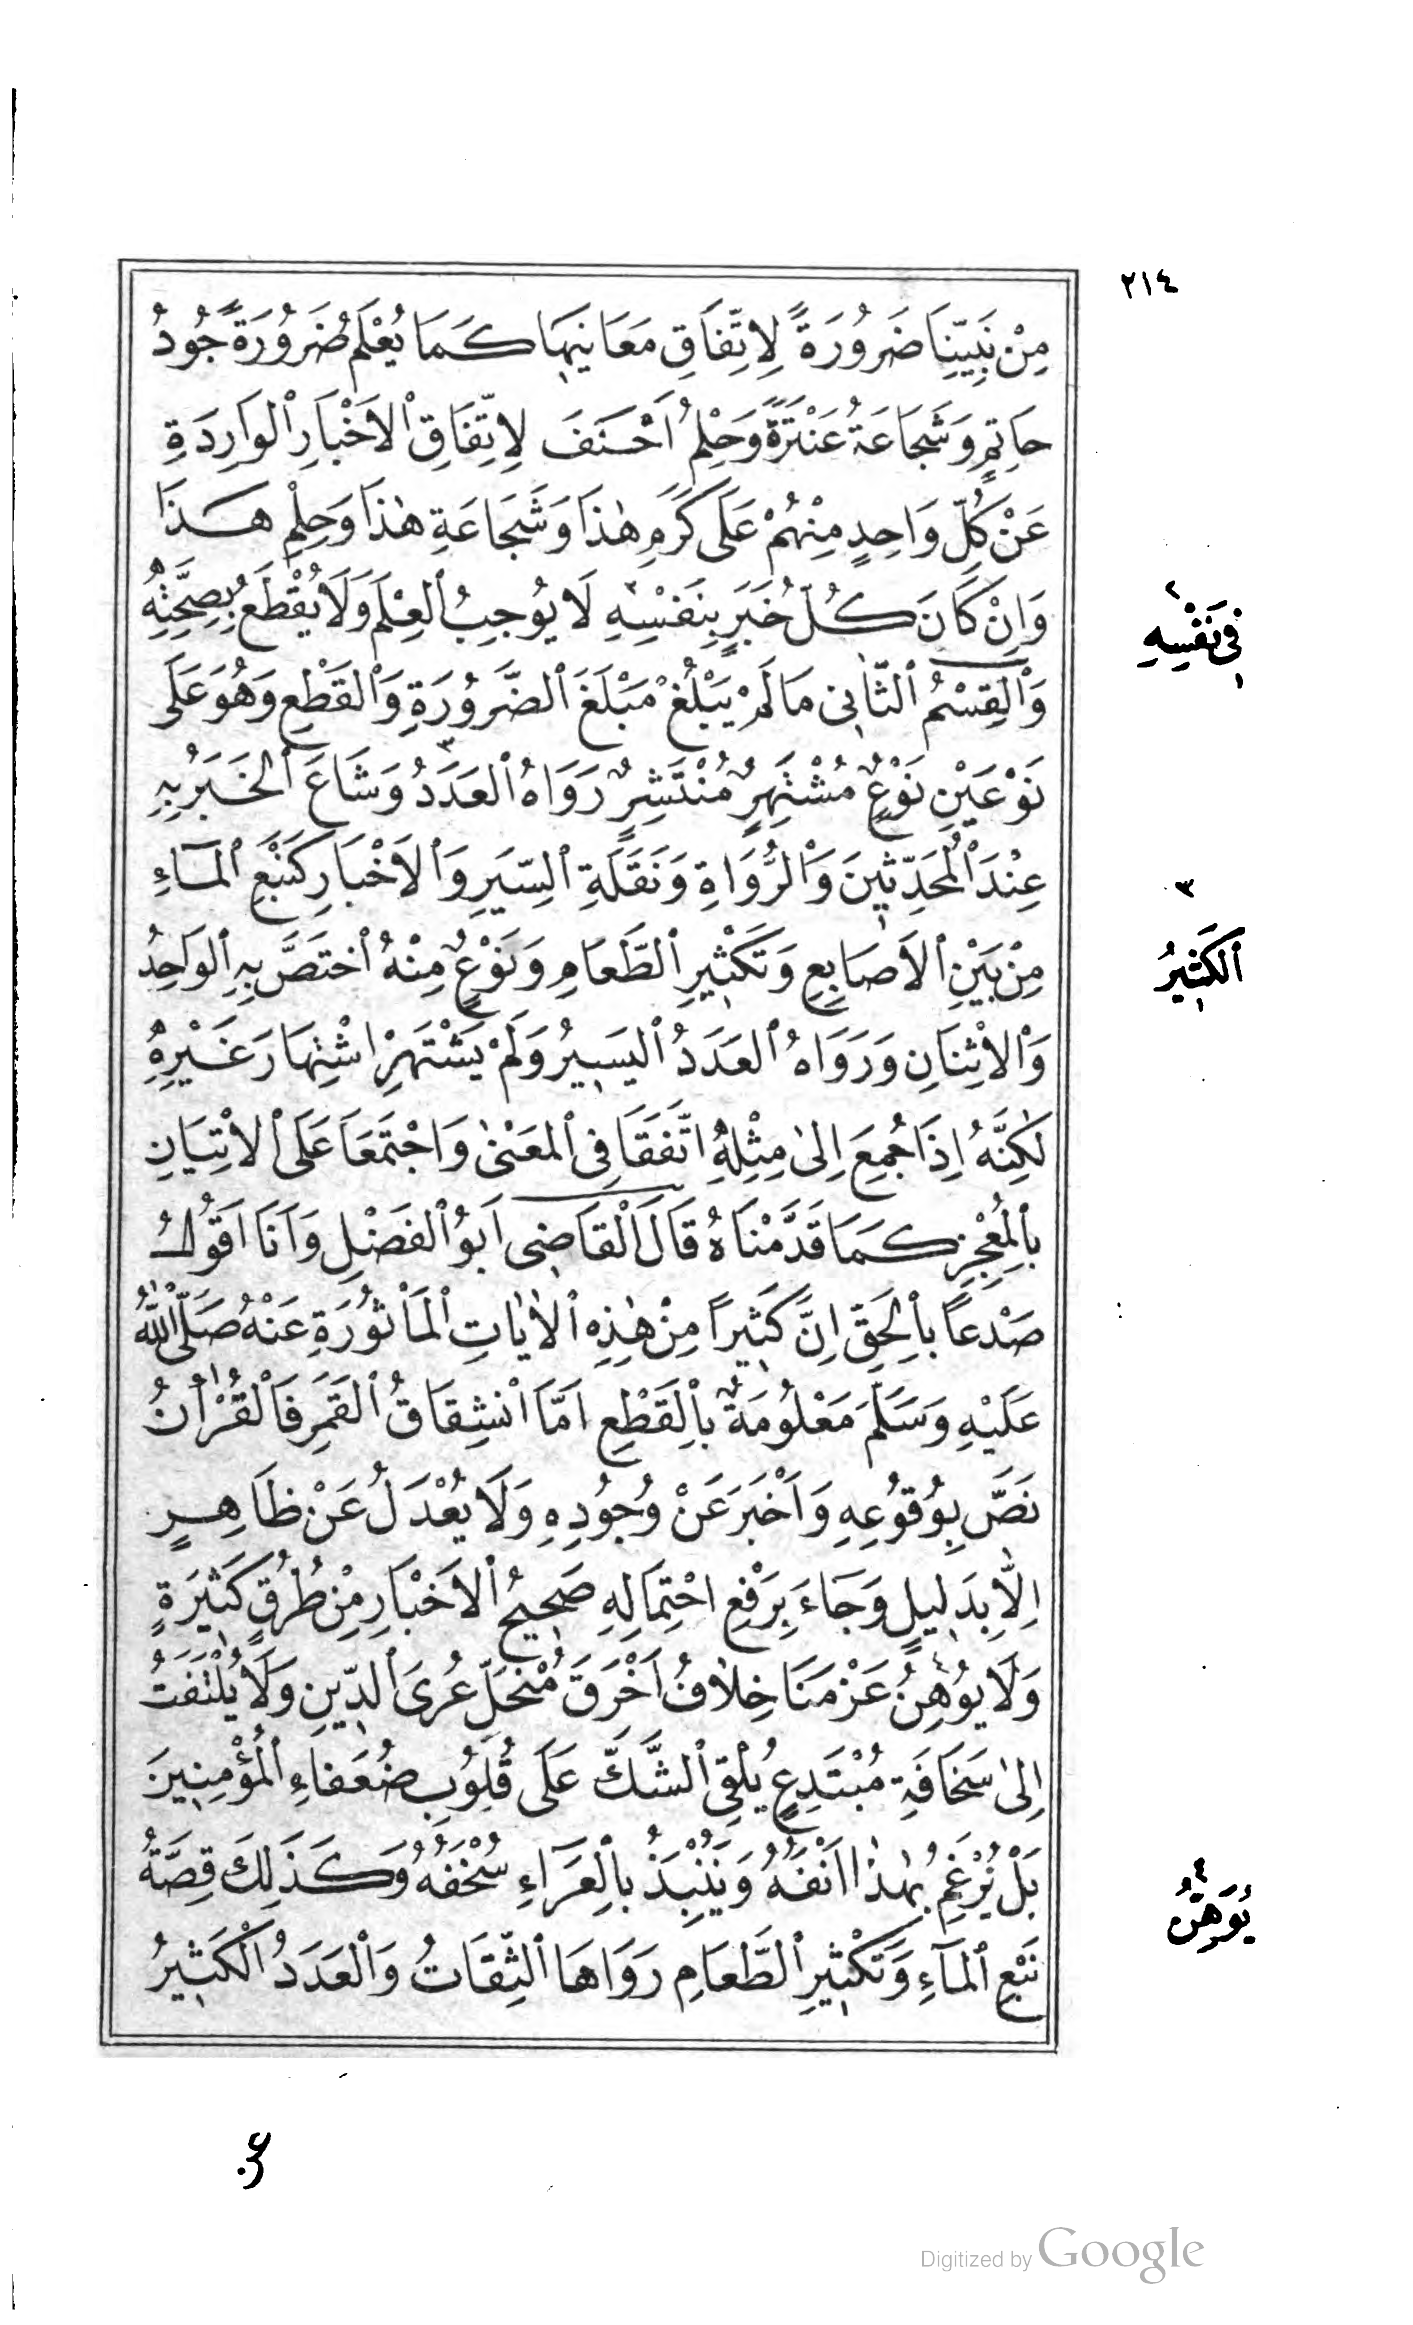 ٢١٤
مِنْ نَبِيِّنَا ضَرُورَةً لِاتِّفَاقِ مَعَانِيهَا كَمَا يُعْلَمُ ضَرُورَةً جُودُ
حَاتِمٍ وَشَجَاعَةُ عَنْتَرَةَ وَحِلْمُ اَحْنَفَ لِاتِّفَاقِ الْاَخْبَارِ الْوَارِدَةِ
عَنْ كُلِّ وَاحِدٍ مِنْهُمْ عَلَى كَرَمِ هٰذَا وَشَجَاعَةِ هٰذَا وَحِلْمِ هٰذَا
وَاِنْ كَانَ كُلُّ خَبَرٍ بِنَفْسِهِ ٢ لَا يُوجِبُ الْعِلْمَ وَلَا يُقْطَعُ بِصِحَّتِهِ
فِى نَفْسِهِ ٢
وَالْقِسْمُ الثَّانِى مَا لَمْ يَبْلُغْ مَبْلَغَ الضَّرُورَةِ وَالْقَطْعِ وَهُوَ عَلَى
نَوْعَيْنِ نَوْعٌ مُشْتَهِرٌ مُنْتَشِرٌ رَوَاهُ الْعَدَدُ ٣ وَشَاعَ الْخَبَرُ بِهِ
عِنْدَ الْمُحَدِّثِينَ وَالرُّوَاةِ وَنَقَلَةِ السِّيَرِ وَالْاَخْبَارِ كَنَبْعِ الْمَآءِ
٣
مِنْ بَيْنِ الْاَصَابِعِ وَتَكْثِيرِ الطَّعَامِ وَنَوْعٌ مِنْهُ اخْتَصَّ بِهِ الْوَاحِدُ
الْكَثِيرُ
وَالْاِثْنَانِ وَرَوَاهُ الْعَدَدُ الْيَسِيرُ وَلَمْ يَشْتَهِرْ اشْتِهَارَ غَيْرِهِ
لٰكِنَّهُ اِذَا جُمِعَ اِلٰى مِثْلِهِ اتَّفَقَا فِى الْمَعْنٰى وَاجْتَمَعَا عَلَى الْاِتْيَانِ
بِالْمُعْجِزِ كَمَا قَدَّمْنَاهُ قَالَ الْقَاضِى اَبُو الْفَضْلِ وَاَنَا اَقُولُ
صَدْعًا بِالْحَقِّ اِنَّ كَثِيرًا مِنْ هٰذِهِ الْاٰيَاتِ الْمَأْثُورَةِ عَنْهُ صَلَّى اللّٰهُ
عَلَيْهِ وَسَلَّمَ مَعْلُومَةٌ بِالْقَطْعِ اَمَّا انْشِقَاقُ الْقَمَرِ فَالْقُرْاٰنُ
نَصَّ بِوُقُوعِهِ وَاَخْبَرَ عَنْ وُجُودِهِ وَلَا يُعْدَلُ عَنْ ظَاهِرٍ
اِلَّا بِدَلِيلٍ وَجَاءَ بِرَفْعِ احْتِمَالِهِ صَحِيحُ الْاَخْبَارِ مِنْ طُرُقٍ كَثِيرَةٍ
وَلَا يُوهِنُ ٤ عَزْمَنَا خِلَافُ اَخْرَقَ مُنْحَلِّ عُرَى الدِّينِ وَلَا يُلْتَفَتُ
اِلٰى سَخَافَةِ مُبْتَدِعٍ يُلْقِى الشَّكَّ عَلَى قُلُوبِ ضُعَفَاءِ الْمُؤْمِنِينَ
بَلْ نُرْغِمُ بِهٰذَا اَنْفَهُ وَنَنْبِذُ بِالْعَرَآءِ سُخْفَهُ وَكَذَلِكَ قِصَّةُ
٤
يُوَهِّنُ
نَبْعِ الْمَآءِ وَتَكْثِيرِ الطَّعَامِ رَوَاهَا الثِّقَاتُ وَالْعَدَدُ الْكَثِيرُ
Digitized by Google